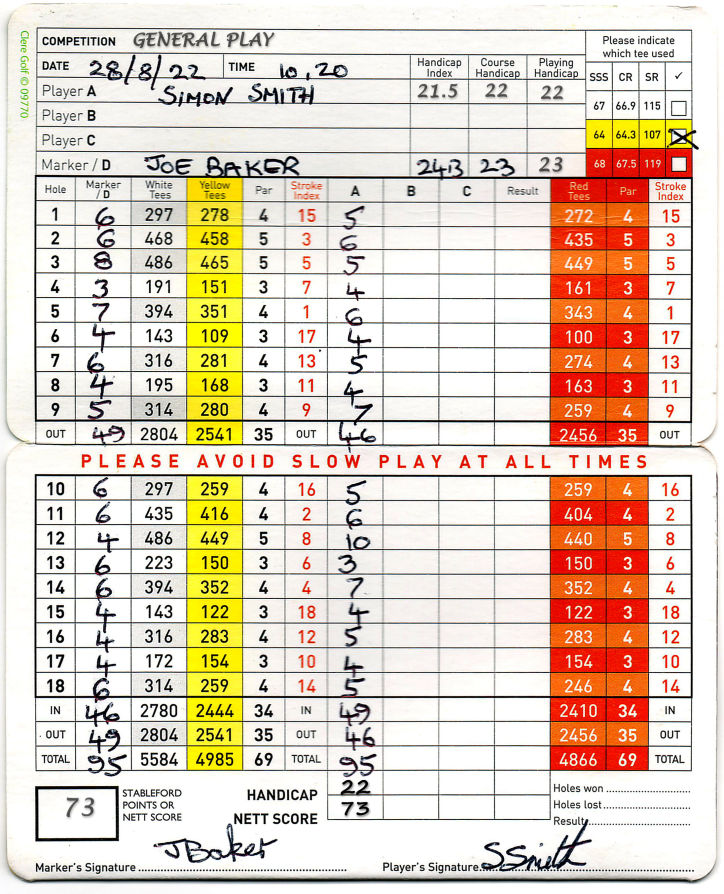 Clere Golf © 09770
COMPETITION GENERAL PLAY Please indicate which tee used
DATE 28/8/22 TIME 10,20 Handicap Index Course Handicap Playing Handicap SSS CR SR ✓
Player A SIMON SMITH 21.5 22 22 67 66.9 115
Player B
Player C 64 64.3 107 X
Marker / D JOE BAKER 24.3 23 23 68 67.5 119
Hole Marker / D White Tees Yellow Tees Par Stroke Index A B C Result Red Tees Par Stroke Index
1 6 297 278 4 15 5 272 4 15
2 6 468 458 5 3 6 435 5 3
3 8 486 465 5 5 5 449 5 5
4 3 191 151 3 7 4 161 3 7
5 7 394 351 4 1 6 343 4 1
6 4 143 109 3 17 4 100 3 17
7 6 316 281 4 13 5 274 4 13
8 4 195 168 3 11 4 163 3 11
9 5 314 280 4 9 7 259 4 9
OUT 49 2804 2541 35 OUT 46 2456 35 OUT
PLEASE AVOID SLOW PLAY AT ALL TIMES
10 6 297 259 4 16 5 259 4 16
11 6 435 416 4 2 6 404 4 2
12 4 486 449 5 8 10 440 5 8
13 6 223 150 3 6 3 150 3 6
14 6 394 352 4 4 7 352 4 4
15 4 143 122 3 18 4 122 3 18
16 4 316 283 4 12 5 283 4 12
17 4 172 154 3 10 4 154 3 10
18 6 314 259 4 14 5 246 4 14
IN 46 2780 2444 34 IN 49 2410 34 IN
OUT 49 2804 2541 35 OUT 46 2456 35 OUT
TOTAL 95 5584 4985 69 TOTAL 95 4866 69 TOTAL
73 STABLEFORD POINTS OR NETT SCORE HANDICAP 22 Holes won
NETT SCORE 73 Holes lost
Result
Marker's Signature JBaker Player's Signature SSmith